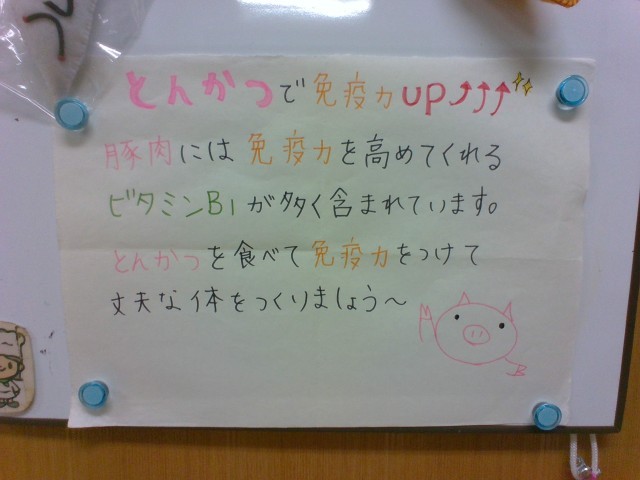 とんかつで免疫力UP↑↑↑
豚肉には免疫力を高めてくれる
ビタミンB1が多く含まれています。
とんかつを食べて免疫力をつけて
丈夫な体をつくりましょう～